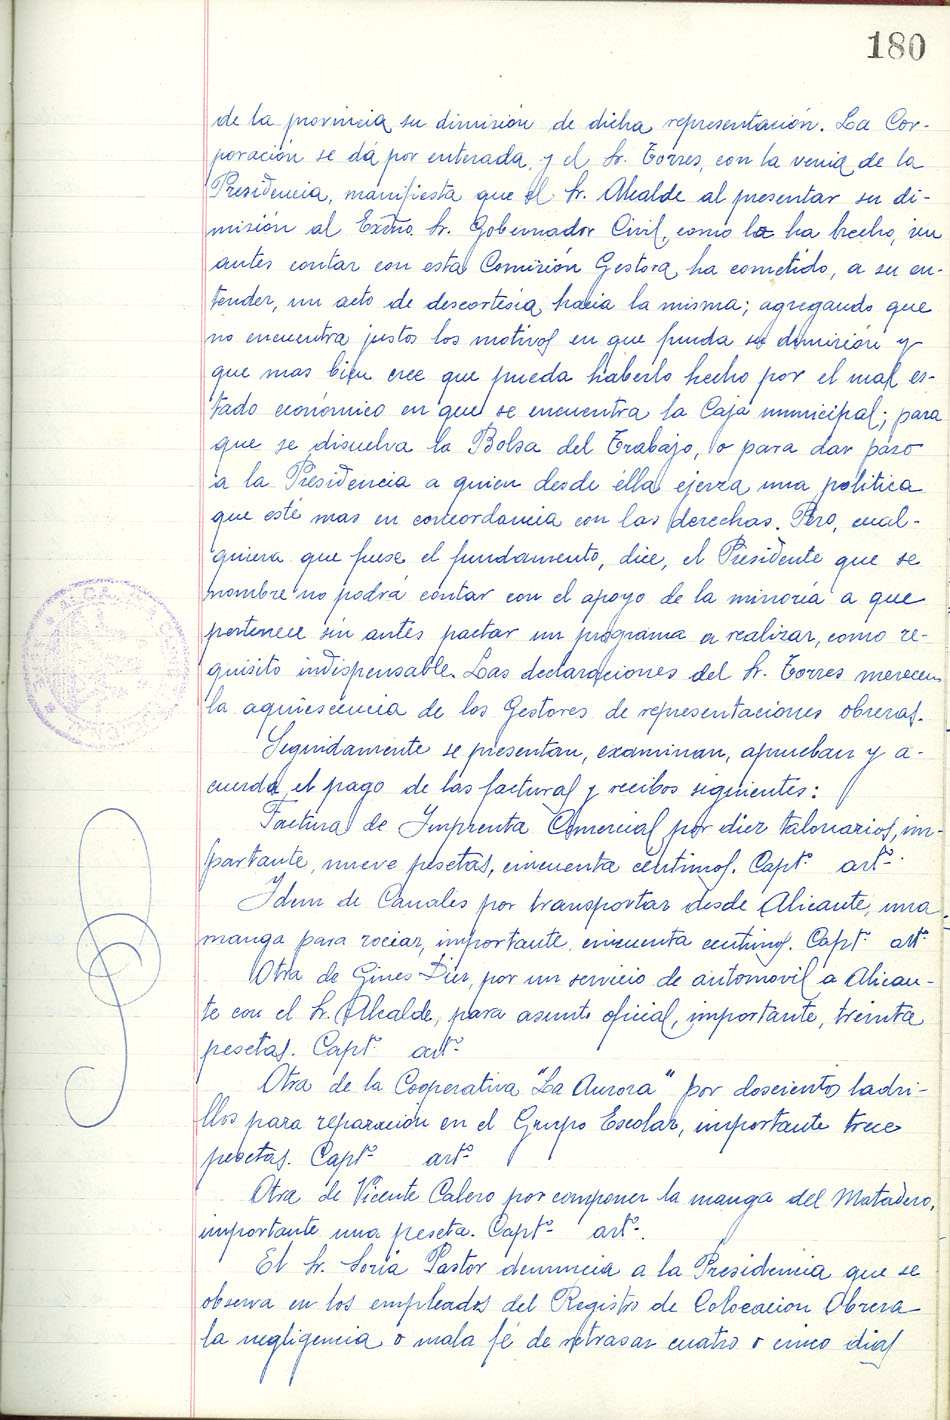 180
de la provincia su dimisión de dicha representación. La Cor-
poración se dá por enterada, y el Sr. Torres, con la venia de la
Presidencia, manifiesta que el Sr. Alcalde al presentar su di-
misión al Exmo. Sr. Gobernador Civil, como lo ha hecho, sin
antes contar con esta Comisión Gestora, ha cometido, a su en-
tender, un acto de descortesía hacia la misma; agregando que
no encuentra justos los motivos en que funda su dimisión y
que mas bien cree que pueda haberlo hecho por el mal es-
tado económico en que se encuentra la Caja municipal; para
que se disuelva la Bolsa del Trabajo, o para dar paso
a la Presidencia a quien desde élla ejerza una política
que esté mas en concordancia con las derechas. Pero, cual-
quiera que fuese el fundamento, dice, el Presidente que se
nombre no podrá contar con el apoyo de la minoría a que
pertenece sin antes pactar un programa a realizar, como re-
quisito indispensable. Las declaraciones del Sr. Torres merecen
la aquiescencia de los Gestores de representaciones obreras.
Seguidamente se presentan, examinan, aprueban y a-
cuerda el pago de las facturas y recibos siguientes:
Factura de Imprenta Comercial por diez talonarios, im-
portante, nueve pesetas, cincuenta centimos. Capt.º artº.
Idem de Canales por transportar desde Alicante, una
manga para rociar, importante, cincuenta centimos. Capt.º artº
Otra de Gines Diez, por un servicio de automovil a Alican-
te con el Sr. Alcalde, para asunto oficial, importante, treinta
pesetas. Capt.º artº
Otra de la Cooperativa "La Aurora" por doscientos ladri-
llos para reparación en el Grupo Escolar, importante trece
pesetas. Capt.º artº
Otra de Vicente Calero por componer la manga del Matadero,
importante una peseta. Capt.º artº.
El Sr. Soria Pastor denuncia a la Presidencia que se
observa en los empleados del Registro de Colocacion Obrera
la negligencia o mala fé de retrasar cuatro o cinco dias
ALCALDIA